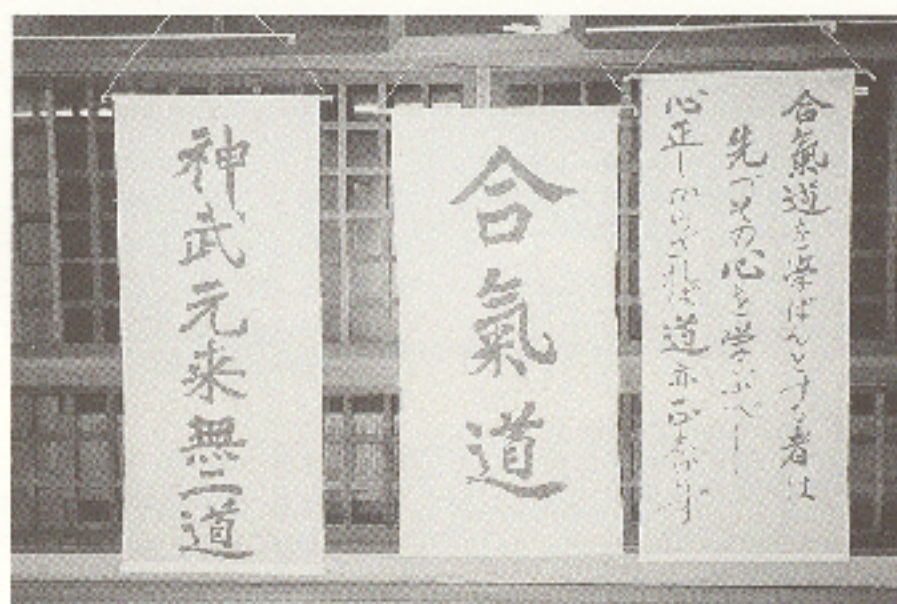 合氣道を学ばんとする者は
先づその心を学ぶべし
心正しからざれば道亦正しからず
合氣道
神武元来無二道